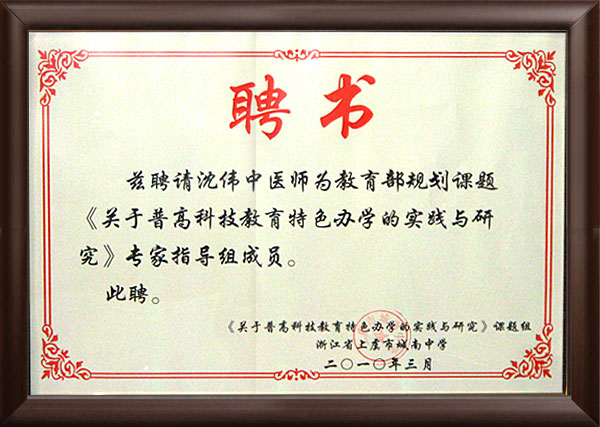 聘书
兹聘请沈伟中医师为教育部规划课题
《关于普高科技教育特色办学的实践与研
究》专家指导组成员。
此聘。
《关于普高科技教育特色办学的实践与研究》课题组
浙江省上虞市城南中学
二〇一〇年三月